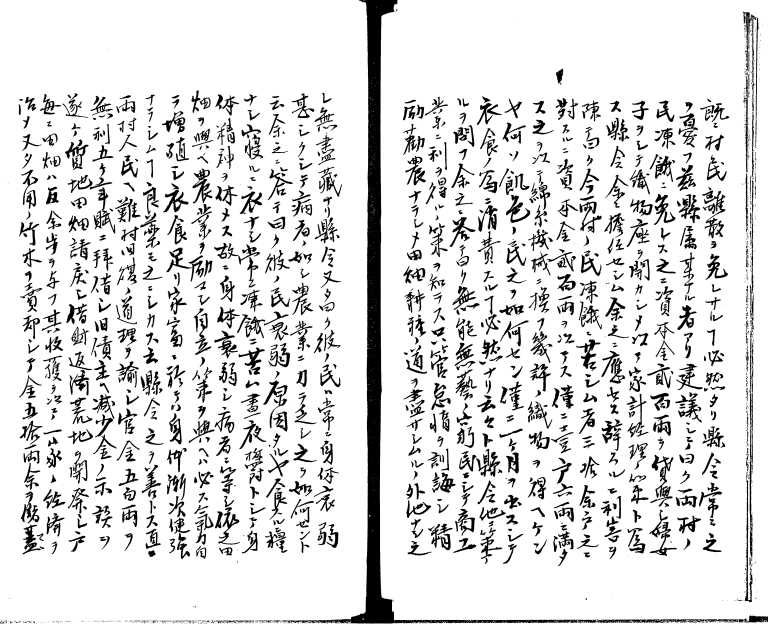 既ニ村民離散ヲ免レナルヿ必然タリ縣令常ニ之
ヲ憂フ茲縣属某ナル者アリ建議シテ曰ク両村ノ
民凍餓ニ免レス之ニ資本金貳百両ヲ貸與シ婦女
子ヲシテ織物座ヲ開カシメ以テ家計経理ノ策ト為
ス縣令余ニ擔任セシム余之ニ應セス辞スルニ利害ヲ
陳テ曰ク今両村ノ民凍餓ニ苦シム者三拾余戸之ニ
對スルニ資本金貳百両ヲ以テス僅ニ壹戸六両ニ満タ
ス之ヲ以テ綿糸機械ニ換フ幾許ノ織物ヲ得ヘケン
ヤ何ソ飢色ノ民之ヲ如何セン僅ニ一ヶ月ヲ出スシテ
衣食ノ為ニ消費スルヿ必然ナリ云々ト縣令他ニ策ア
ルヲ問フ余之ニ答テ曰ク無能無藝ノ窮民ニシテ商工
業ニ利ヲ得ル策ヲ知ラス只管怠惰ヲ訓誨シ精
励勸農ナラシメ田畑耕耘ノ道ヲ盡サシムルノ外他ナシ之
レ無盡藏ナリ縣令又曰ク彼ノ民ハ常ニ身体衰弱
甚シクシテ病者ノ如シ農業ニ力足ラシ之ヲ如何セント
云余之ニ答テ曰ク彼ノ民衰弱ノ原因タルヤ食スルニ糧
ナシ寝ルニ衣ナシ常ニ凍餓ニ苦ム晝夜欝トシテ身
体精神ヲ休メス故ニ身体衰弱シ病者ニ等シ依之田
畑ヲ與ヘ農業ヲ励マシ自立ノ策ヲ與ヘハ必ス氣力自
ラ増殖シ衣食足リ家富ニ於テハ身体漸次健強
ナラシムヿ良藥モ之ニシカス云縣令之ヲ善トス直ニ
両村人民ヘ難村旧復ノ道理ヲ諭シ官金五百両ヲ
無利五ケ年賦ニ拜借シ旧債主ヘ減少金ノ示談ヲ
遂ケ質地田畑請戻シ借財返濟荒地ノ開発シ戸
毎ニ田畑八反余歩ヲ与フ其収獲ヲ以テ一家ノ経済ヲ
治メ又タ不用ノ竹木ヲ賣却シテ金五拾両余ヲ助蓋